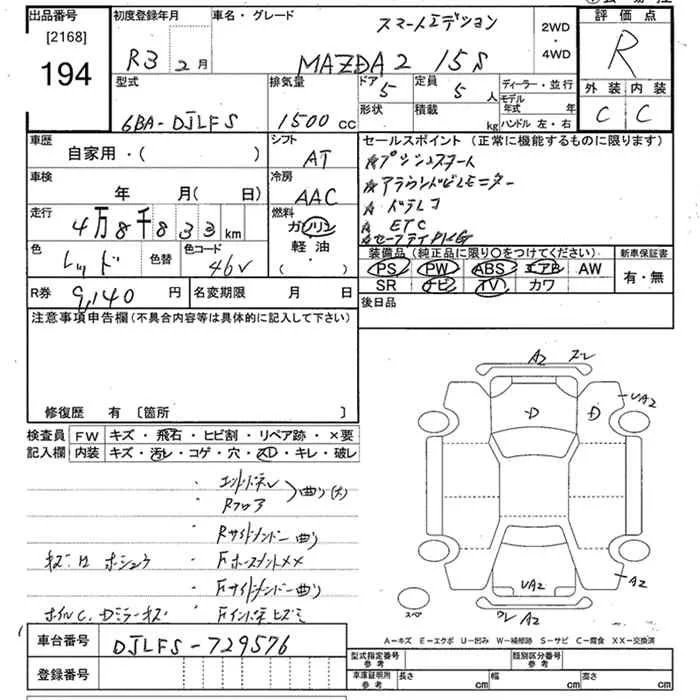 出品番号
[2168]
194
初度登録年月
R3 2月
車名・グレード
スマートエデション
MAZDA2 15S
2WD
・
4WD
評価点
R
外装 内装
C C
型式
6BA-DJLFS
排気量
1500 CC
ドア
5
定員
5 人
形状
積載
kg
ディーラー・並行
モデル年式 年
ハンドル 左・右
車歴
自家用・( )
シフト
AT
車検
年 月( 日)
冷房
AAC
走行
4万8千833 km
燃料
ガソリン
軽油
( ・ )
色
レッド
色替
色コード
46V
R券
9,140 円
名変期限 月 日
セールスポイント (正常に機能するものに限ります)
☆プッシュスタート
☆アラウンドビュモニター
☆ ドラレコ
☆ ETC
装備品 (純正品に限り〇をつけてください)
PS PW ABS エアB AW
SR ナビ TV カワ
新車保証書
有・無
後日品
注意事項申告欄(不具合内容等は具体的に記入して下さい)
修復歴 有 〔箇所 〕
検査員
記入欄
FW キズ・飛石・ヒビ割・リペア跡・×要
内装 キズ・汚レ・コゲ・穴・スレ・キレ・破レ
Rフロア
曲り(大)
Rサイドメンバー曲り
Fサイドメンバー曲り
A2 ズレ
D
D
UA2
UA2
A2
ズレ A2
スペア
車台番号
DJLFS-729576
登録番号
A－キズ E－エクボ U－凹み W－補修跡 S－サビ C－腐食 XX－交換済
型式指定番号
参考
類別区分番号
参考
車庫証明用
参考
長さ cm
幅 cm
高さ cm